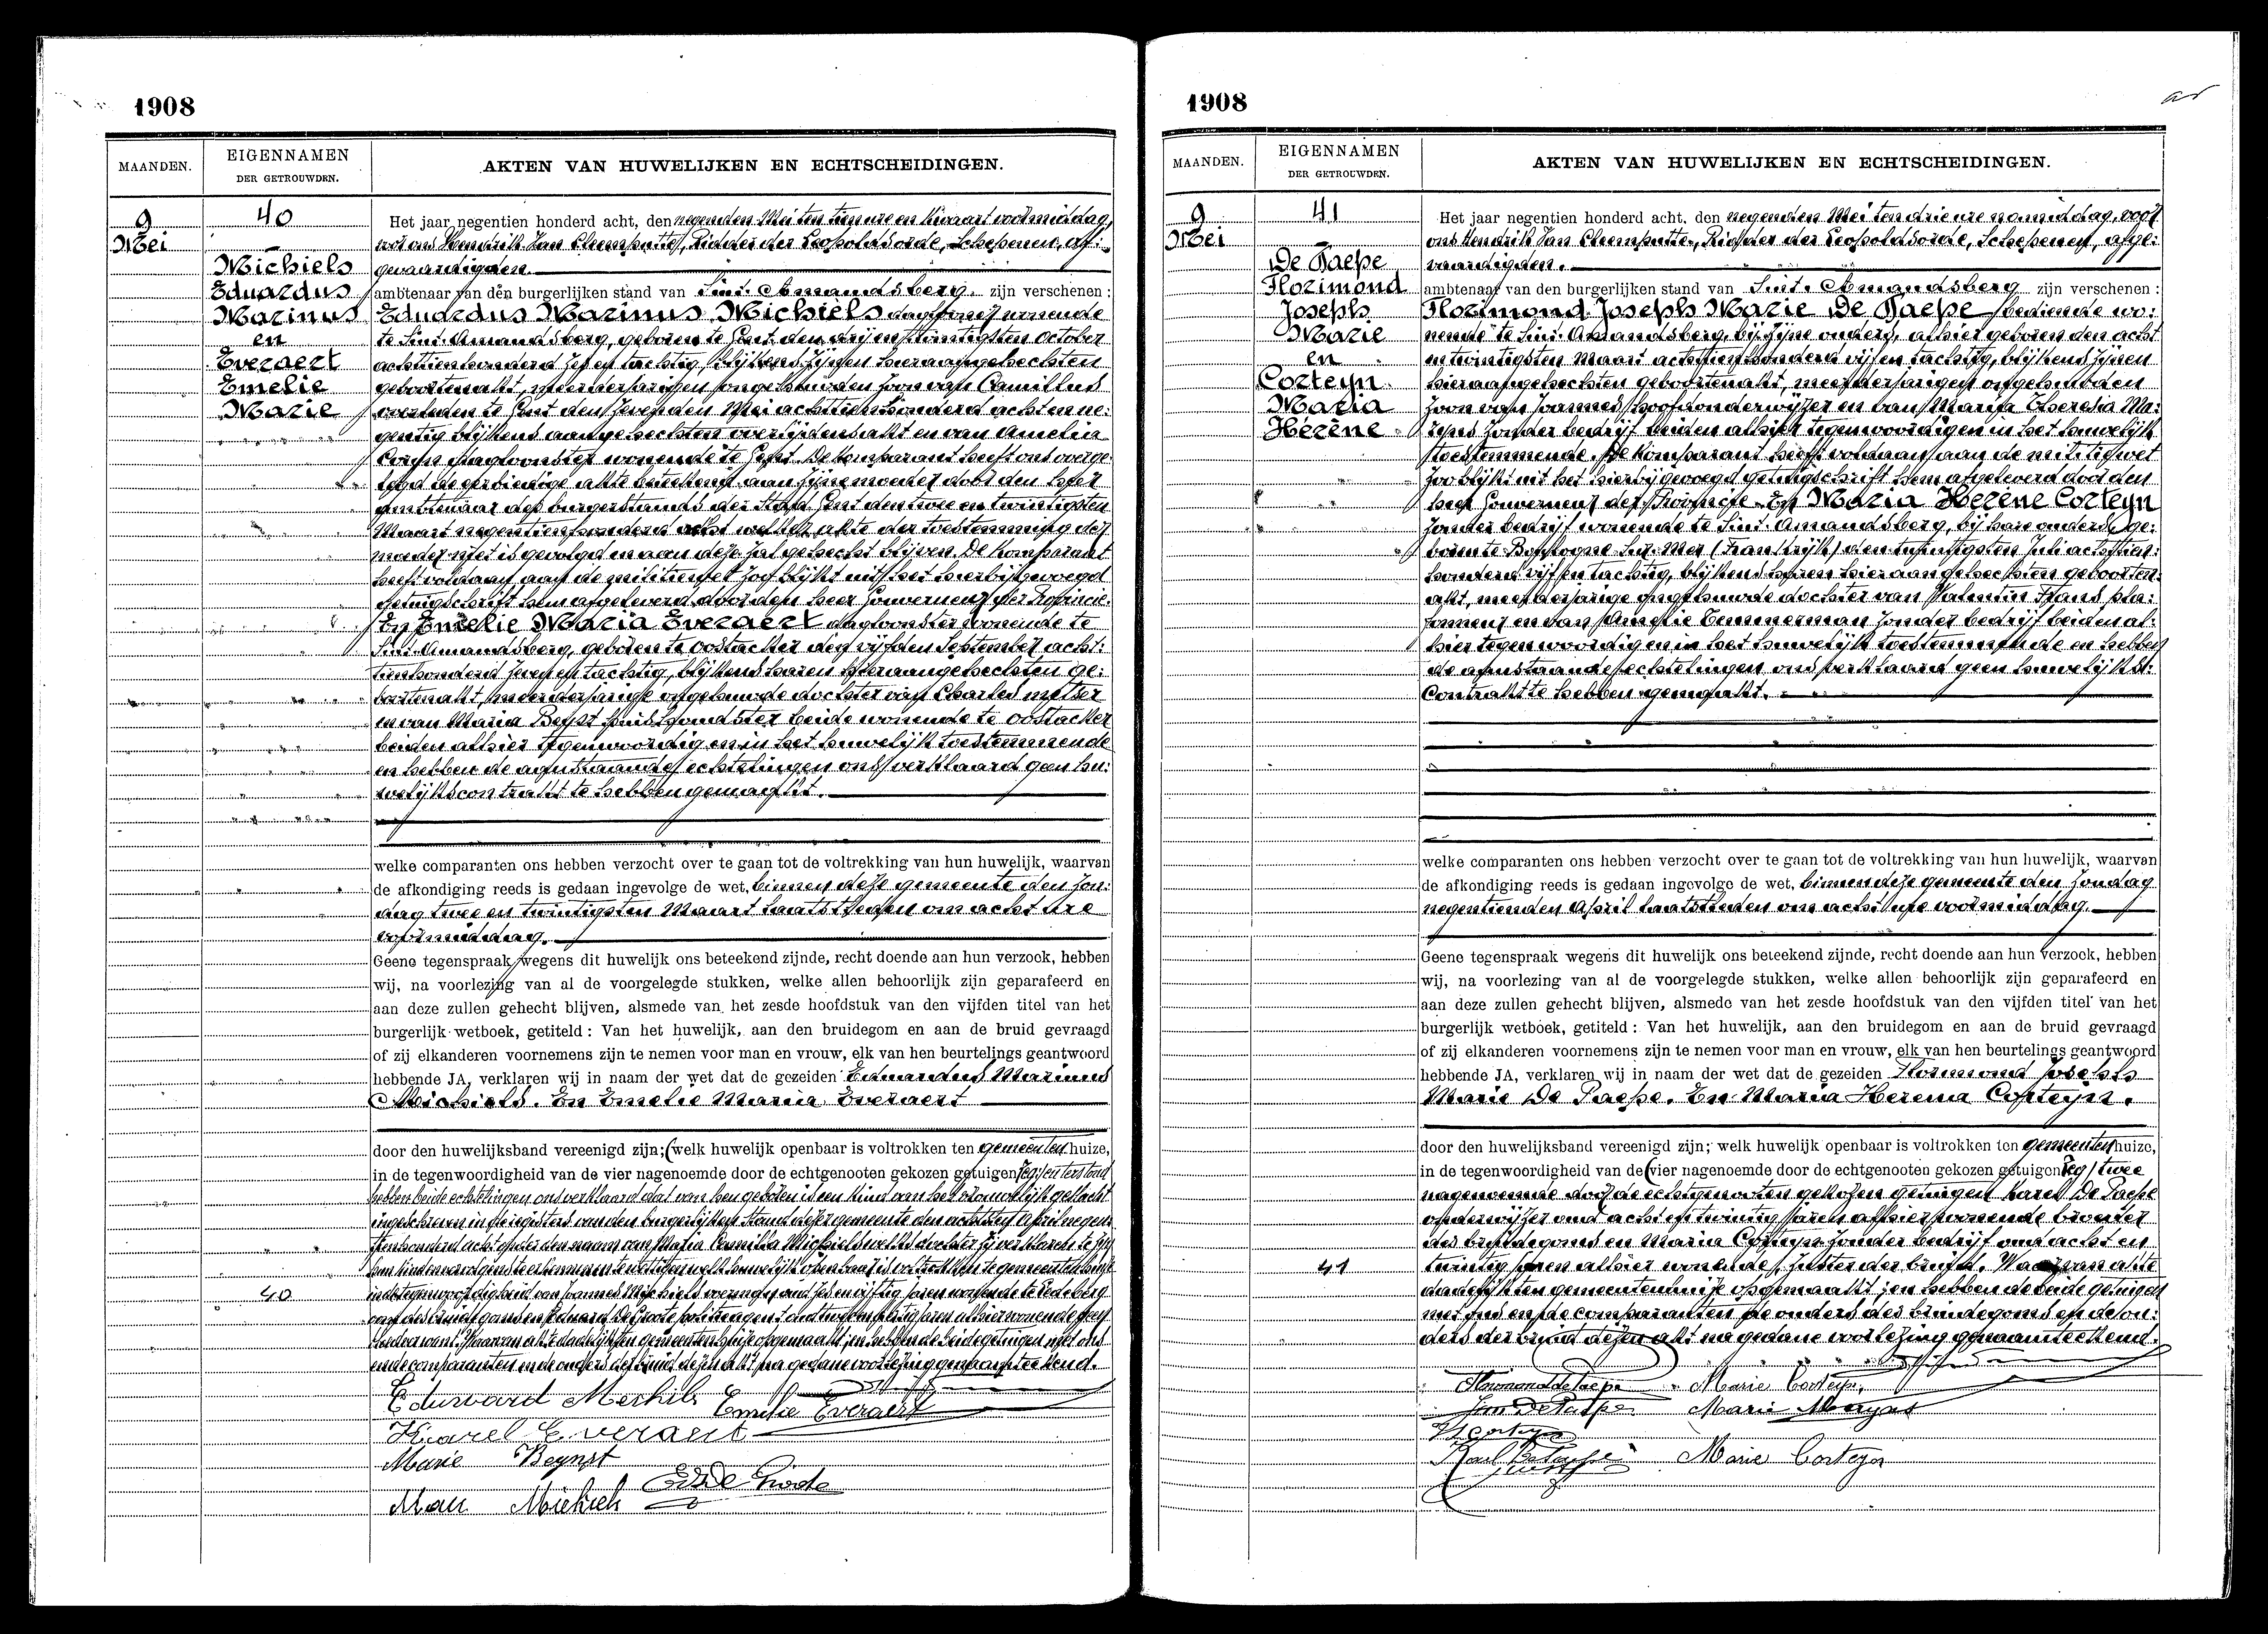 1908
MAANDEN.
EIGENNAMEN
DER GETROUWDEN.
AKTEN VAN HUWELIJKEN EN ECHTSCHEIDINGEN.
9
Mei
40
Michiels
Eduardus
Marinus
en
Everaert
Emelie
Marie
Het jaar negentien honderd acht, den negenden Mei ten tien ure en kwaart voormiddag,
voor ons Hendrik Jan Cleemputte, Ridder der Leopoldsorde, Schepenen, af:
gevaardigden.
ambtenaar van den burgerlijken stand van Sint. Amandsberg, zijn verschenen :
Eduardus Marinus Michiels daglooner wonende
te Sint. Amandsberg, geboren te Gent den drij en twintigsten October
achttienhonderd zes en tachtig, blijkens zijnen hieraangehechten
geboortenakt, meerderjarigen ongehuwden zoon van Camillus
overleden te Gent den zevenden Mei achttienhonderd acht en ne:
gentig blijkens aangehechten overlijdensakt en van Amelia
dagloonster wonende te Gent. De komparant heeft ons overge:
legd de eerbiedige akte beteekend aan zijne moeder door den heer
ambtenaar des burgerstands der Stad Gent den twee en twintigsten
Maart negentienhonderd acht welke akte der toestemming der
moeder niet is gevolgd en aan deze zal gehecht blijven. De Komparant
heeft voldaan aan de militiewet zoo blijkt uit het hierbijgevoegd
getuigschrift hem afgeleverd door den heer Gouverneur der Provincie.
En Emelie Maria Everaert dagloonster wonende te
Sint. Amandsberg, geboren te Oostacker den vijfden September acht:
tienhonderd zeven en tachtig, blijkens haren hieraangehechten ge:
boortenakt, minderjarige ongehuwde dochter van Charles metser
en van Maria Beynst huishoudster beide wonende te Oostacker
beiden alhier tegenwoordig en in het huwelijk toestemmende
en hebben de aanstaande echtelingen ons verklaard geen hu:
welijkscontrakt te hebben gemaakt.
welke comparanten ons hebben verzocht over te gaan tot de voltrekking van hun huwelijk, waarvan
de afkondiging reeds is gedaan ingevolge de wet, binnen deze gemeente den Zon:
dag twee en twintigsten Maart laatstleden om acht ure
voormiddag.
Geene tegenspraak wegens dit huwelijk ons beteekend zijnde, recht doende aan hun verzoek, hebben
wij, na voorlezing van al de voorgelegde stukken, welke allen behoorlijk zijn geparafeerd en
aan deze zullen gehecht blijven, alsmede van het zesde hoofdstuk van den vijfden titel van het
burgerlijk wetboek, getiteld : Van het huwelijk, aan den bruidegom en aan de bruid gevraagd
of zij elkanderen voornemens zijn te nemen voor man en vrouw, elk van hen beurtelings geantwoord
hebbende JA, verklaren wij in naam der wet dat de gezeiden Eduardus Marinus
Michiels. En Emelie Maria Everaert
door den huwelijksband vereenigd zijn; (welk huwelijk openbaar is voltrokken ten gemeentenhuize,
in de tegenwoordigheid van de vier nagenoemde door de echtgenooten gekozen getuigen
hebben beide echtelingen ons verklaard dat van hen geboren is een kind van het vrouwelijk geslacht
ingeschreven in de registers van den burgerlijken Stand dezer gemeente den achtsten April negen
tienhonderd acht onder den naam van Maria Camilia Michiels welke dochter zij verklaren te zijn
40
in de tegenwoordigheid van Joannes Michiels oud zes en vijftig jaren wonende te Ledeberg
oom des bruidegoms en Eduard De Groote politieagent oud jaren alhier wonende geen
bloedverwant. Waarvan akte dadelijk ten gemeentenhuize opgemaakt; en hebben de beide getuigen met ons
en de comparanten en de ouders der bruid dezen akt na gedane voorlezing genaamteekend.
Eduward Mechils
Emelie Everaert
Karel Everaert
Marie Beynst
Michiels
1908
MAANDEN.
EIGENNAMEN
DER GETROUWDEN.
AKTEN VAN HUWELIJKEN EN ECHTSCHEIDINGEN.
9
Mei
41
De Paepe
Florimond
Joseph
Marie
en
Corteyn
Maria
Hérène
Het jaar negentien honderd acht, den negenden Mei ten drie ure namiddag, voor
ons Hendrik Jan Cleemputte, Ridder der Leopoldsorde, Schepenen, afge:
vaardigden.
ambtenaar van den burgerlijken stand van Sint. Amandsberg zijn verschenen :
Florimond Joseph Marie De Paepe bediende wo:
nende te Sint. Amandsberg, bij zijne ouders, alhier geboren den acht
en twintigsten Maart achttienhonderd vijf en tachtig, blijkens zijnen
hieraangehechten geboortenakt, meerderjarigen ongehuwden
zoon van Joannes hoofdonderwijzer en van Maria Theresia Ma:
zonder bedrijf beiden alhier tegenwoordig en in het huwelijk
toestemmende. De komparant heeft voldaan aan de militiewet
zoo blijkt uit het hierbijgevoegd getuigschrift hem afgeleverd door den
heer Gouverneur der Provincie. En Maria Hérène Corteyn
zonder bedrijf wonende te Sint. Amandsberg, bij hare ouders, ge:
boren te Boulogne Sur. Mer (Frankrijk) den twintigsten Juli achttien:
honderd vijf en tachtig, blijkens haren hieraangehechten geboorten:
akt, meerderjarige ongehuwde dochter van Valentin Frans
en van Amelie Temmerman zonder bedrijf beiden al:
hier tegenwoordig en in het huwelijk toestemmende en hebben
de aanstaande echtelingen ons verklaard geen huwelijks:
contrakt te hebben gemaakt.
welke comparanten ons hebben verzocht over te gaan tot de voltrekking van hun huwelijk, waarvan
de afkondiging reeds is gedaan ingevolge de wet, binnen deze gemeente den Zondag
negentienden April laatstleden om acht ure voormiddag.
Geene tegenspraak wegens dit huwelijk ons beteekend zijnde, recht doende aan hun verzoek, hebben
wij, na voorlezing van al de voorgelegde stukken, welke allen behoorlijk zijn geparafeerd en
aan deze zullen gehecht blijven, alsmede van het zesde hoofdstuk van den vijfden titel van het
burgerlijk wetboek, getiteld : Van het huwelijk, aan den bruidegom en aan de bruid gevraagd
of zij elkanderen voornemens zijn te nemen voor man en vrouw, elk van hen beurtelings geantwoord
hebbende JA, verklaren wij in naam der wet dat de gezeiden Florimond Joseph
Marie De Paepe. En Maria Herena Corteyn.
door den huwelijksband vereenigd zijn; welk huwelijk openbaar is voltrokken ten gemeentenhuize,
in de tegenwoordigheid van de (vier nagenoemde door de echtgenooten gekozen getuigen twee
nagenoemde door de echtgenooten gekozen getuigen Karel De Paepe
onderwijzer oud acht en twintig jaren alhier wonende broeder
des bruidegoms en Maria Corteyn zonder bedrijf oud acht en
twintig jaren alhier wonende, zuster der bruid. Waarvan akte
41
dadelijk ten gemeentenhuize opgemaakt; en hebben de beide getuigen
met ons en de comparanten de ouders des bruidegoms en de ou:
ders der bruid dezen akt na gedane voorlezing genaamteekend.
Florimond de Paepe
Marie Corteyn
Jan De Paepe
V. Corteyn
Karel De Paepe
Marie Corteyn